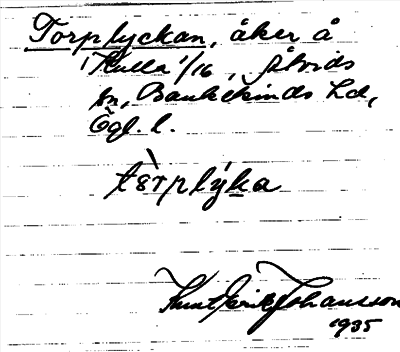 Torplyckan, åker å
'Kulla' 1/16, Åtvids
sn, Bankekinds hd,
Ögl. l.
tòrplýka
Knut Erik Johansson
1935